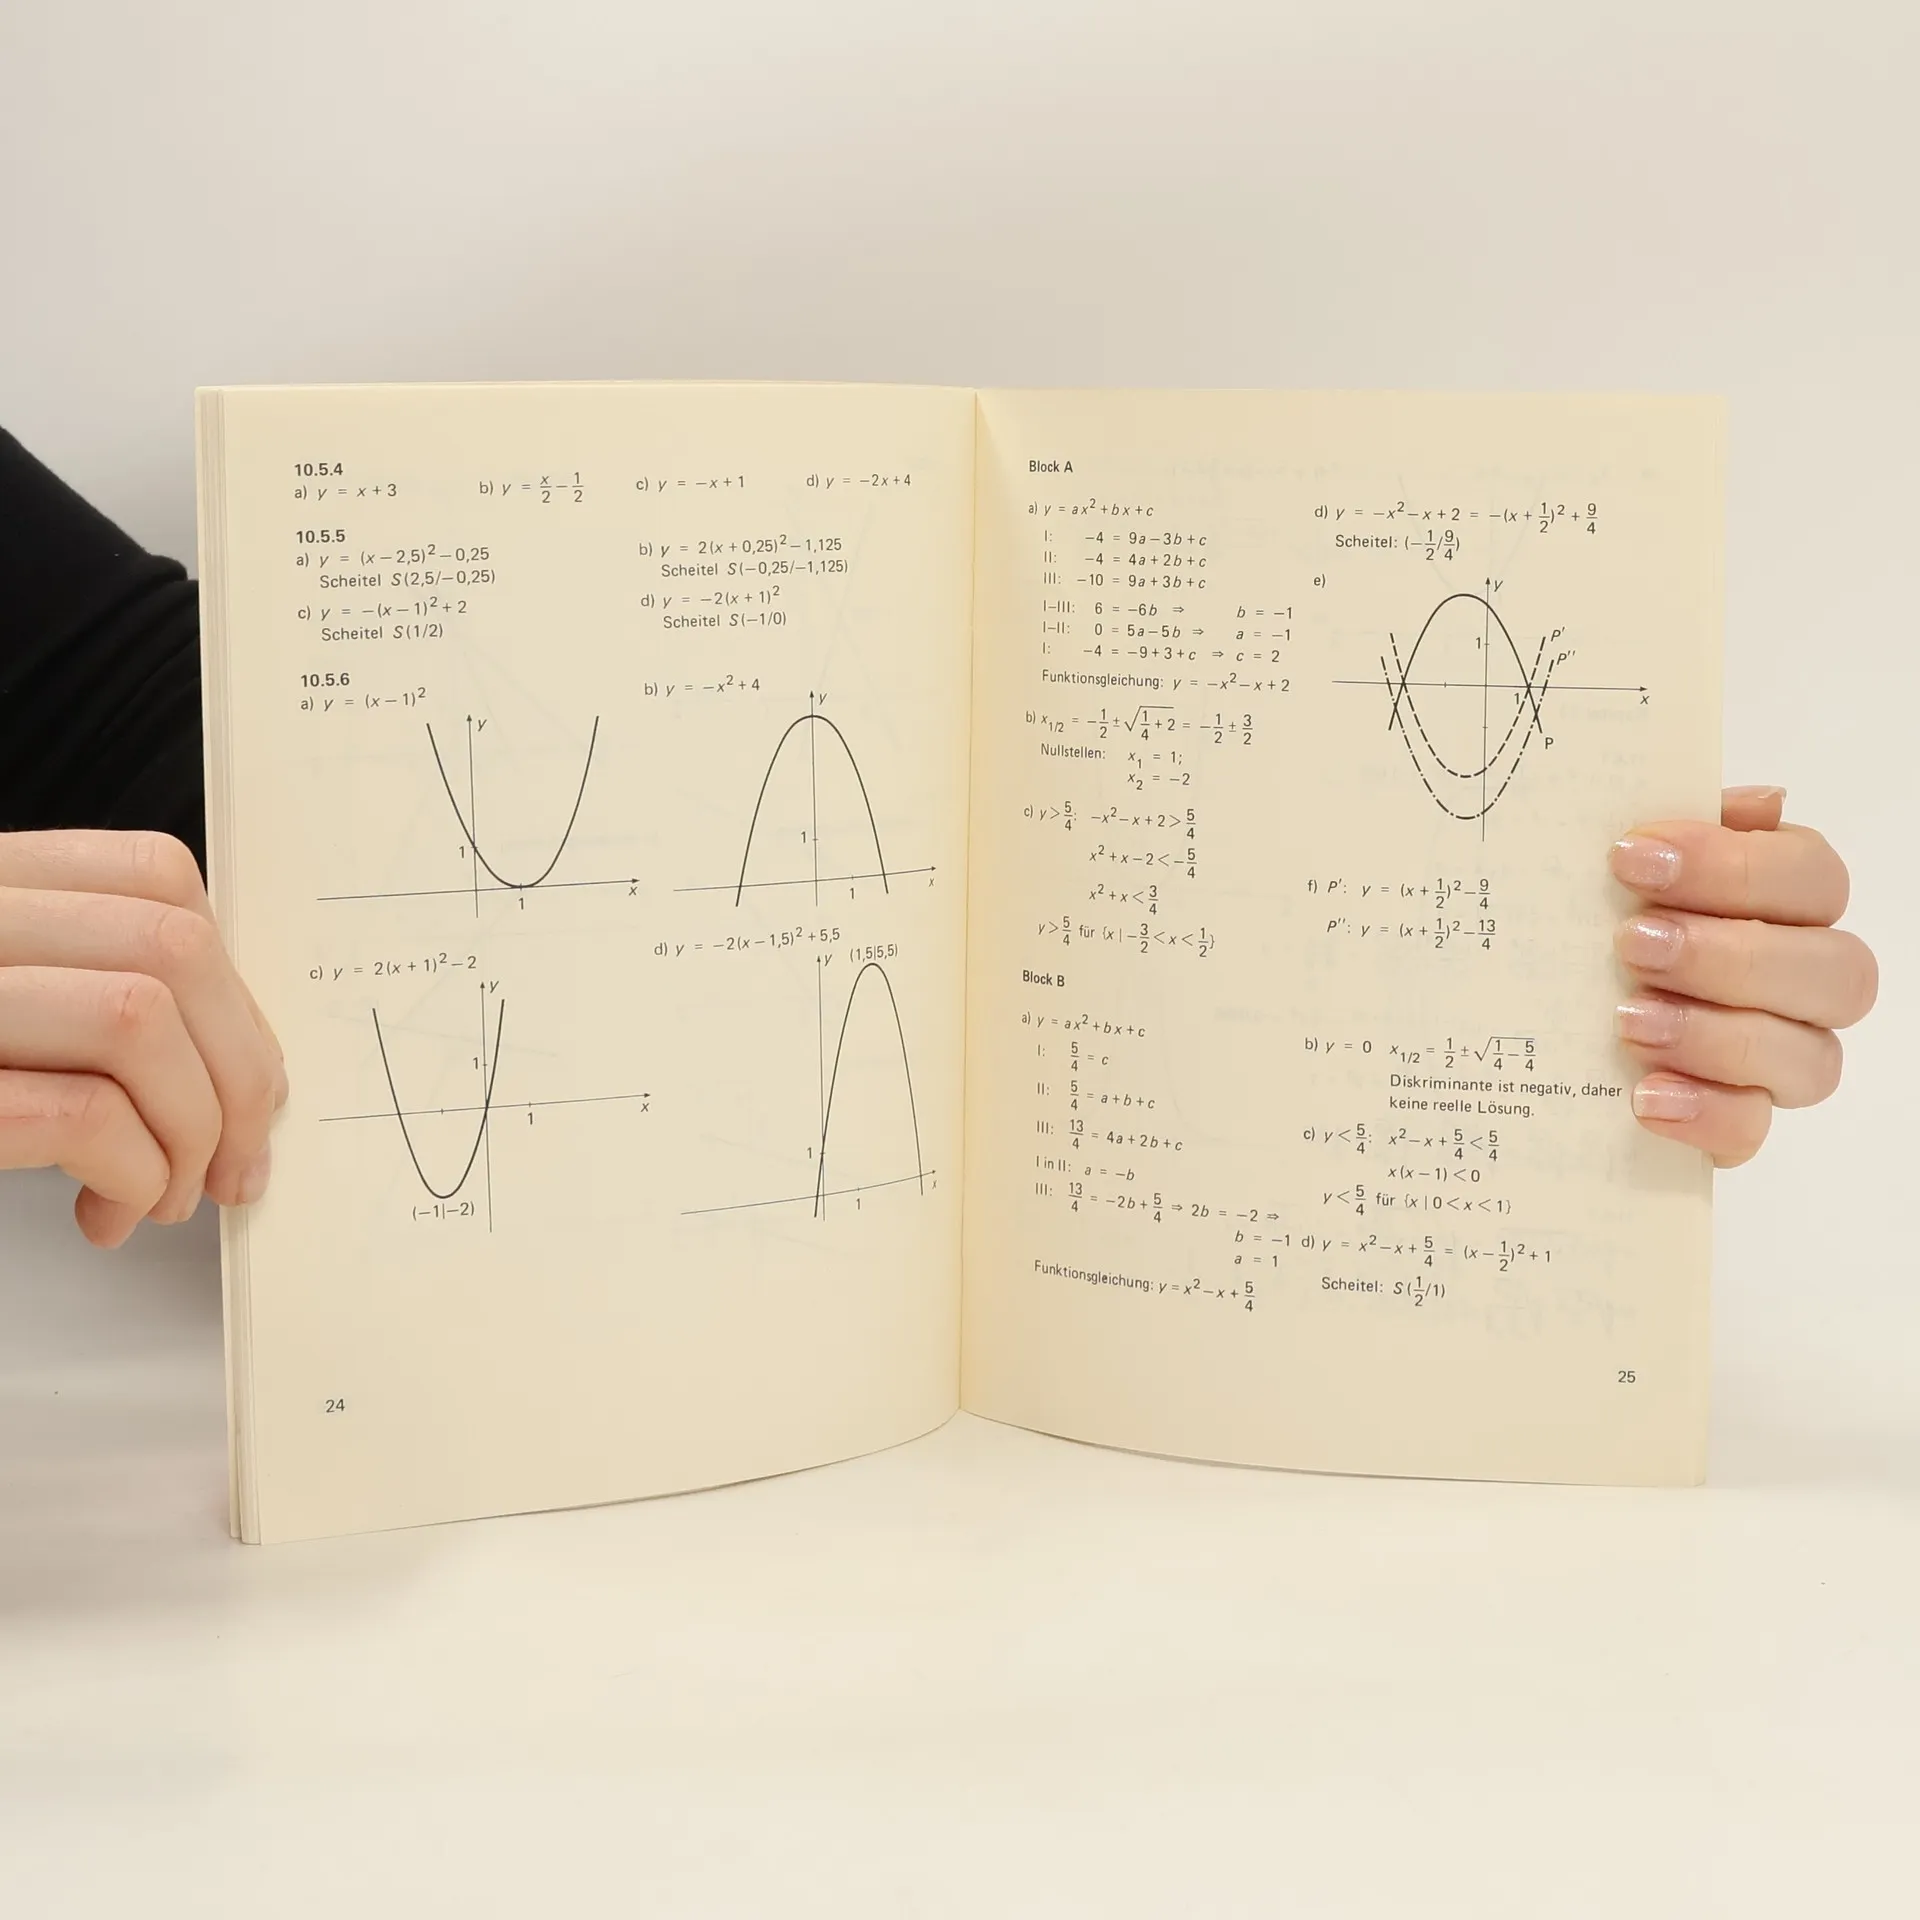 10.5.4
a) y = x + 3 b) y = x/2 − 1/2 c) y = −x + 1 d) y = −2x + 4
10.5.5
a) y = (x − 2,5)² − 0,25
Scheitel S(2,5/−0,25)
b) y = 2(x + 0,25)² − 1,125
Scheitel S(−0,25/−1,125)
c) y = −(x − 1)² + 2
Scheitel S(1/2)
d) y = −2(x + 1)²
Scheitel S(−1/0)
10.5.6
a) y = (x − 1)²
y
1
x
1
b) y = −x² + 4
y
1
1
x
c) y = 2(x + 1)² − 2
y
1
x
1
(−1|−2)
d) y = −2(x − 1,5)² + 5,5
y (1,5|5,5)
1
1
x
24
Block A
a) y = ax² + bx + c
I: −4 = 9a − 3b + c
II: −4 = 4a + 2b + c
III: −10 = 9a + 3b + c
I−III: 6 = −6b ⇒ b = −1
I−II: 0 = 5a − 5b ⇒ a = −1
I: −4 = −9 + 3 + c ⇒ c = 2
Funktionsgleichung: y = −x² − x + 2
b) x1/2 = −1/2 ± √(1/4 + 2) = −1/2 ± 3/2
Nullstellen: x₁ = 1;
x₂ = −2
c) y > 5/4: −x² − x + 2 > 5/4
x² + x − 2 < −5/4
x² + x < 3/4
y > 5/4 für {x | −3/2 < x < 1/2}
d) y = −x² − x + 2 = −(x + 1/2)² + 9/4
Scheitel: (−1/2/9/4)
e)
y
1
P'
P''
1
x
P
f) P': y = (x + 1/2)² − 9/4
P'': y = (x + 1/2)² − 13/4
Block B
a) y = ax² + bx + c
I: 5/4 = c
II: 5/4 = a + b + c
III: 13/4 = 4a + 2b + c
I in II: a = −b
III: 13/4 = −2b + 5/4 ⇒ 2b = −2 ⇒
b = −1
a = 1
Funktionsgleichung: y = x² − x + 5/4
b) y = 0 x1/2 = 1/2 ± √(1/4 − 5/4)
Diskriminante ist negativ, daher
keine reelle Lösung.
c) y < 5/4: x² − x + 5/4 < 5/4
x(x − 1) < 0
y < 5/4 für {x | 0 < x < 1}
d) y = x² − x + 5/4 = (x − 1/2)² + 1
Scheitel: S(1/2/1)
25